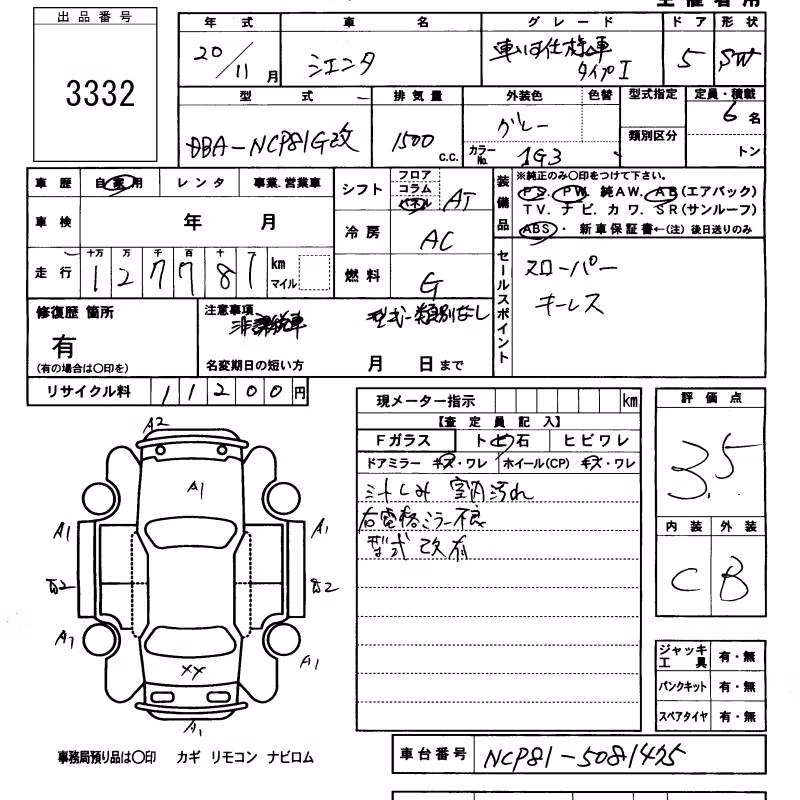 主催者用
出品番号
3332
年式 車名 グレード ドア 形状
20/11月 シエンタ 車いす仕様車 タイプI 5 SW
型式 排気量 外装色 色替 型式指定 定員・積載
DBA-NCP81G改 1500 c.c. グレー 類別区分 6名
カラーNo. 1G3 トン
車歴 自家用 レンタ 事業.営業車
シフト フロア コラム パネル AT
車検 年 月
冷房 AC
走行 十万 万 千 百 十
127781 km マイル
燃料 G
装備品 ※純正のみ〇印をつけて下さい。
PS. PW. 純AW. AB(エアバック)
TV. ナビ. カワ. SR(サンルーフ)
ABS・ 新車保証書←(注) 後日送りのみ
セールスポイント
スローパー
キーレス
修復歴 箇所
有
(有の場合は〇印を)
注意事項
非課税車 型式・類別なし
名変期日の短い方 月 日まで
リサイクル料 11200円
現メーター指示 km
【査定員記入】
Fガラス トビ石 ヒビワレ
ドアミラー キズ・ワレ ホイール(CP) キズ・ワレ
シートしみ 室内汚れ
右電格ミラー不良
型式 改有
評価点
3.5
内装 外装
C B
A2
A1
A1 A1
A1 A1
XX
A1
ジャッキ工具 有・無
パンクキット 有・無
スペアタイヤ 有・無
事務局預り品は〇印 カギ リモコン ナビロム
車台番号 NCP81-5081475